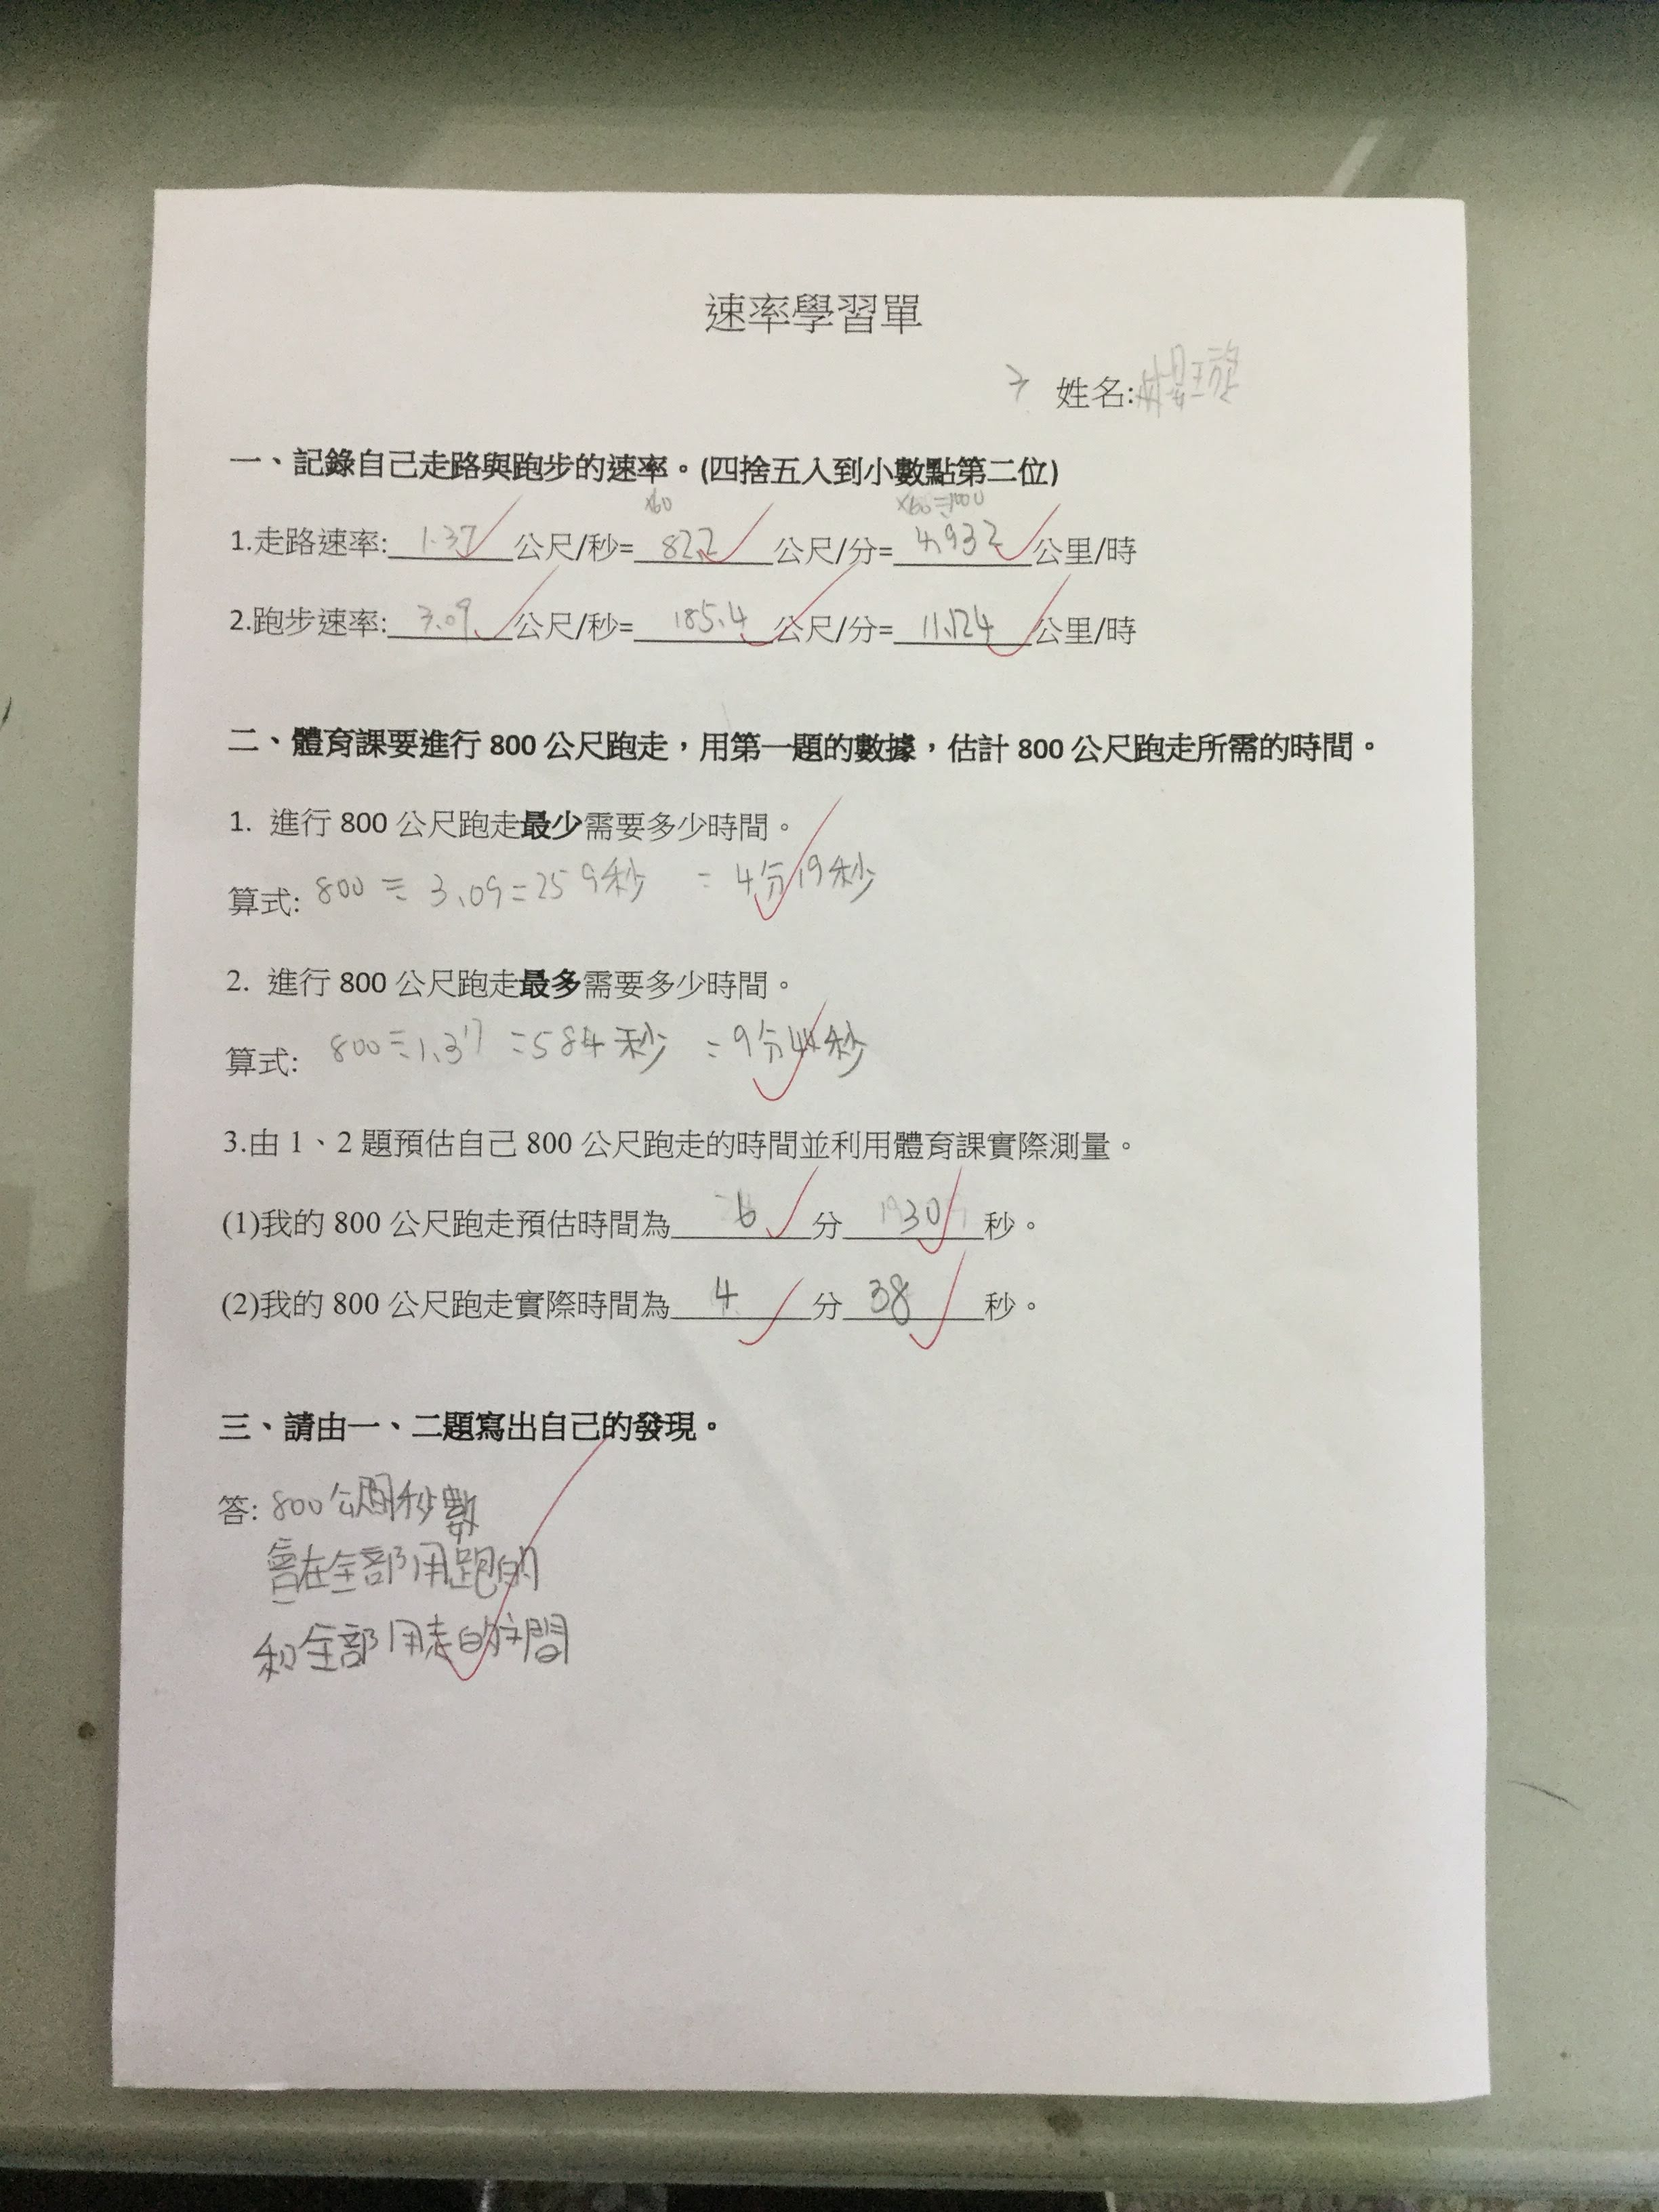 速率學習單
姓名:楊璇
一、記錄自己走路與跑步的速率。(四捨五入到小數點第二位)
×60 ×60÷1000
1.走路速率: 1.37 公尺/秒= 82.2 公尺/分= 4.932 公里/時
2.跑步速率: 3.09 公尺/秒= 185.4 公尺/分= 11.124 公里/時
二、體育課要進行 800 公尺跑走，用第一題的數據，估計 800 公尺跑走所需的時間。
1. 進行 800 公尺跑走最少需要多少時間。
算式: 800÷3.09=259秒 =4分19秒
2. 進行 800 公尺跑走最多需要多少時間。
算式: 800÷1.37=584秒 =9分44秒
3.由 1、2 題預估自己 800 公尺跑走的時間並利用體育課實際測量。
(1)我的 800 公尺跑走預估時間為 6 分 30 秒。
(2)我的 800 公尺跑走實際時間為 4 分 38 秒。
三、請由一、二題寫出自己的發現。
答: 800公 秒數
會在全部用跑的
和全部用走的 間